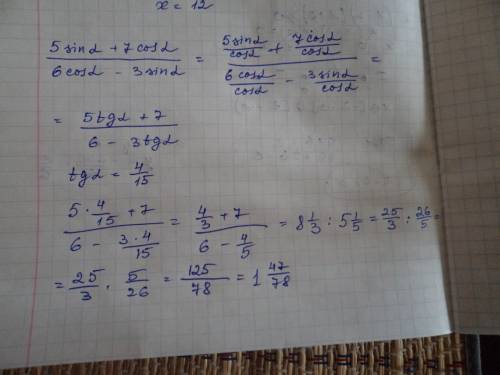 x = 12
(5 sinα + 7 cosα)/(6 cosα - 3 sinα) = (5 sinα/cosα + 7 cosα/cosα)/(6 cosα/cosα - 3 sinα/cosα) =
= (5tgα + 7)/(6 - 3tgα)
tgα = 4/15
(5·4/15 + 7)/(6 - 3·4/15) = (4/3 + 7)/(6 - 4/5) = 8 1/3 : 5 1/5 = 25/3 : 26/5 =
= 25/3 · 5/26 = 125/78 = 1 47/78